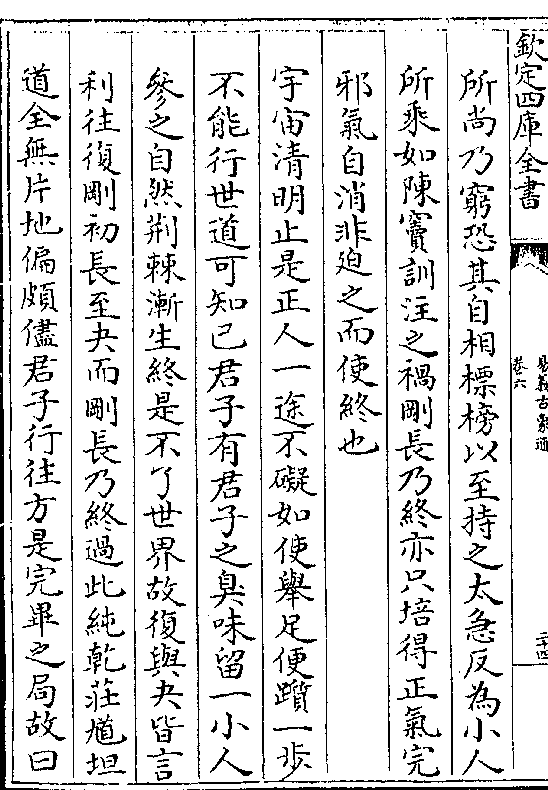 欽定四庫全書
易義古象通
卷六
二十四
所尚乃窮恐其自相標榜以至持之太急反為小人
所乘如陳竇訓注之禍剛長乃終亦只培得正氣完
邪氣自消非迫之而使終也
宇宙清明止是正人一途不礙如使舉足便躓一步
不能行世道可知已君子有君子之臭味留一小人
參之自然荊棘漸生終是不了世界故復與夬皆言
利往復剛初長至夬而剛長乃終過此純乾莊馗坦
道全無片地偏頗儘君子行往方是完畢之局故曰